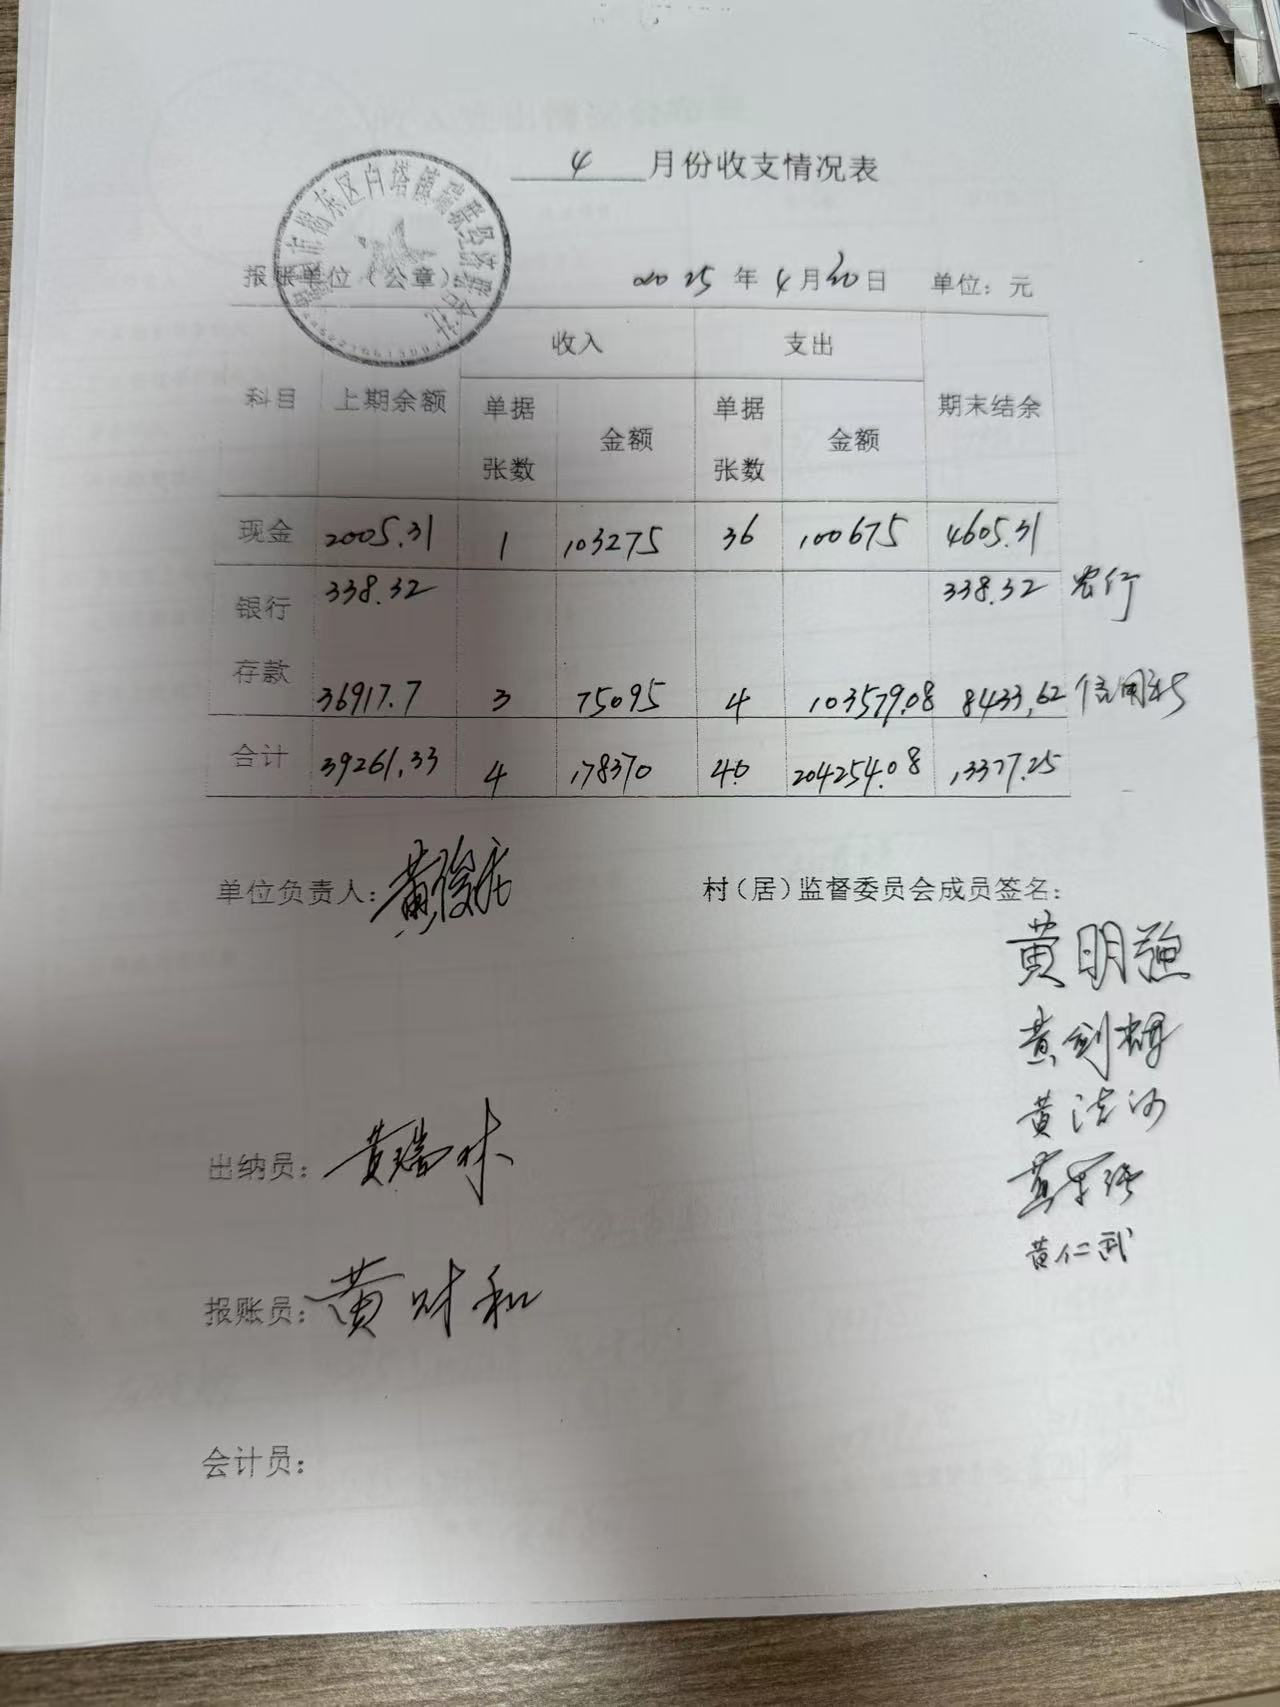 4 月份收支情况表
揭阳市揭东区白塔镇瑞联经济联合社
报账单位（公章） 2025 年 4 月 30 日 单位：元
科目 上期余额 收入 支出 期末结余
单据张数 金额 单据张数 金额
现金 2005.31 1 103275 36 100675 4605.31
银行存款 338.32 338.32 农行
36917.7 3 75095 4 103579.08 8433.62 信用社
合计 39261.33 4 178370 40 204254.08 13377.25
单位负责人： 村（居）监督委员会成员签名：
黄明强
黄剑辉
黄
出纳员：黄瑞
黄仁武
报账员：黄财和
会计员：